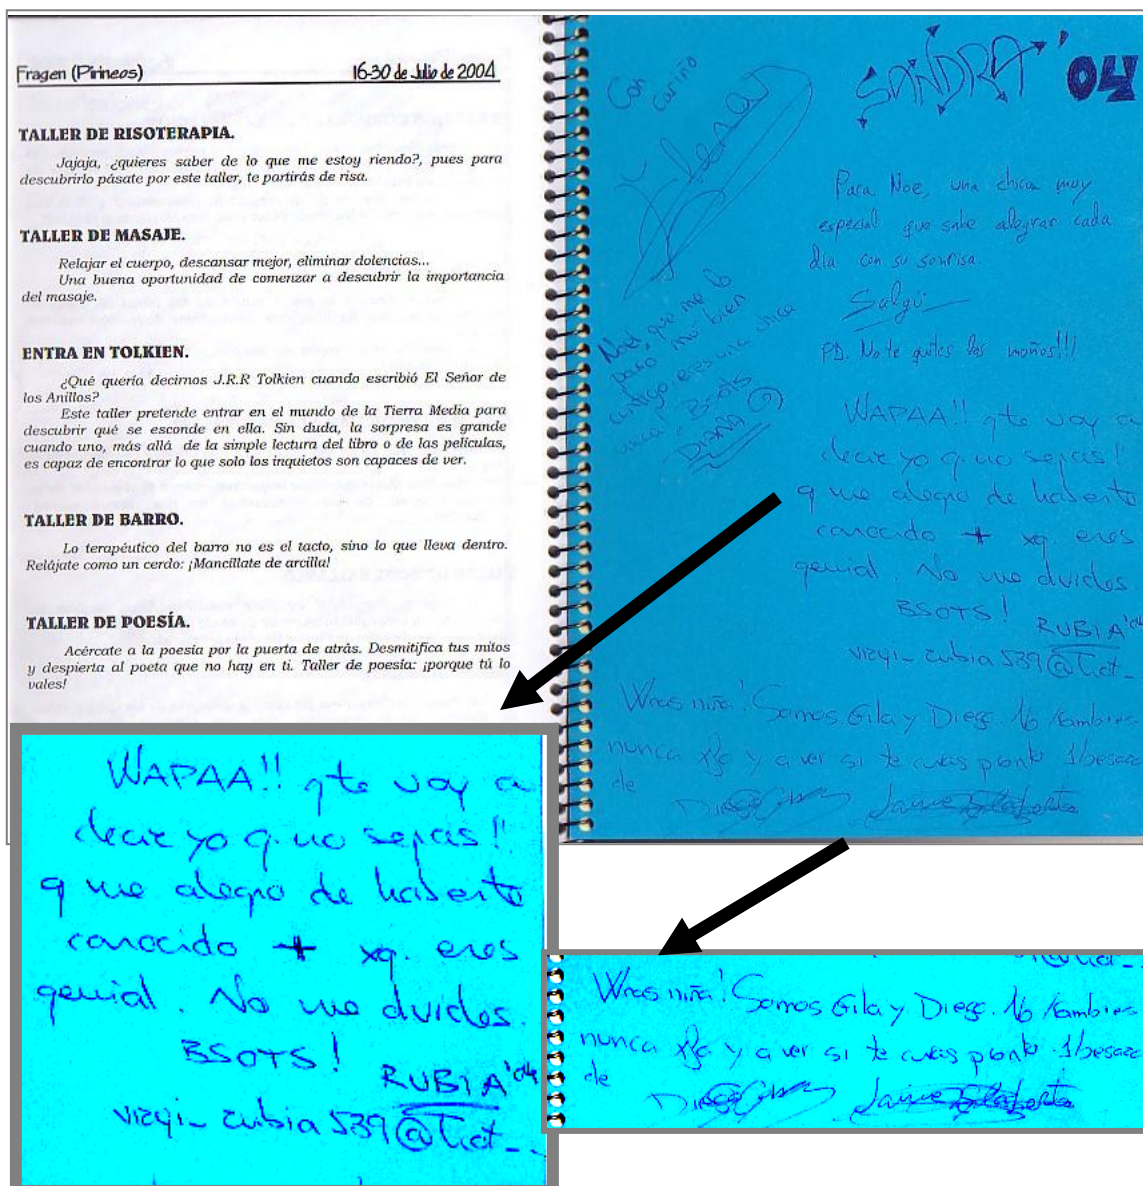 Fragen (Pirineos) 16-30 de Julio de 2004
TALLER DE RISOTERAPIA.
Jajaja, ¿quieres saber de lo que me estoy riendo?, pues para
descubrirlo pásate por este taller, te partirás de risa.
TALLER DE MASAJE.
Relajar el cuerpo, descansar mejor, eliminar dolencias...
Una buena oportunidad de comenzar a descubrir la importancia
del masaje.
ENTRA EN TOLKIEN.
¿Qué quería decirnos J.R.R Tolkien cuando escribió El Señor de
los Anillos?
Este taller pretende entrar en el mundo de la Tierra Media para
descubrir qué se esconde en ella. Sin duda, la sorpresa es grande
cuando uno, más allá de la simple lectura del libro o de las películas,
es capaz de encontrar lo que solo los inquietos son capaces de ver.
TALLER DE BARRO.
Lo terapéutico del barro no es el tacto, sino lo que lleva dentro.
Relájate como un cerdo: ¡Mancíllate de arcilla!
TALLER DE POESÍA.
Acércate a la poesía por la puerta de atrás. Desmitifica tus mitos
y despierta al poeta que no hay en ti. Taller de poesía: ¡porque tú lo
vales!
Con
cariño
SANDRA '04
Para Noe, una chica muy
especial que sabe alegrar cada
día con su sonrisa.
Salgü
PD. No te quites los moños!!!
Noe, que me lo
paso muy bien
contigo, eres una chica
Bsots
DIANA
WAPAA!! q te voy a
decir yo q. no sepas!!
q me alegro de haberte
conocido + xq. eres
genial. No me olvides.
BSOTS!
RUBIA'04
virgi_rubia539@
niña! Somos Gila y Diego. No cambies
nunca y a ver si te pronto 1 besazo
de
Diego Jaime
WAPAA!! q te voy a
decir yo q. no sepas!!
q me alegro de haberte
conocido + xq. eres
genial. No me olvides.
BSOTS!
RUBIA'04
virgi_rubia539@
niña! Somos Gila y Diego. No cambies
nunca y a ver si te pronto 1 besazo
de
Diego Jaime